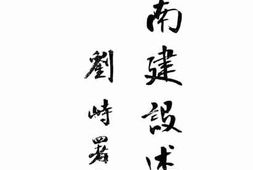 南建設述
劉峙署